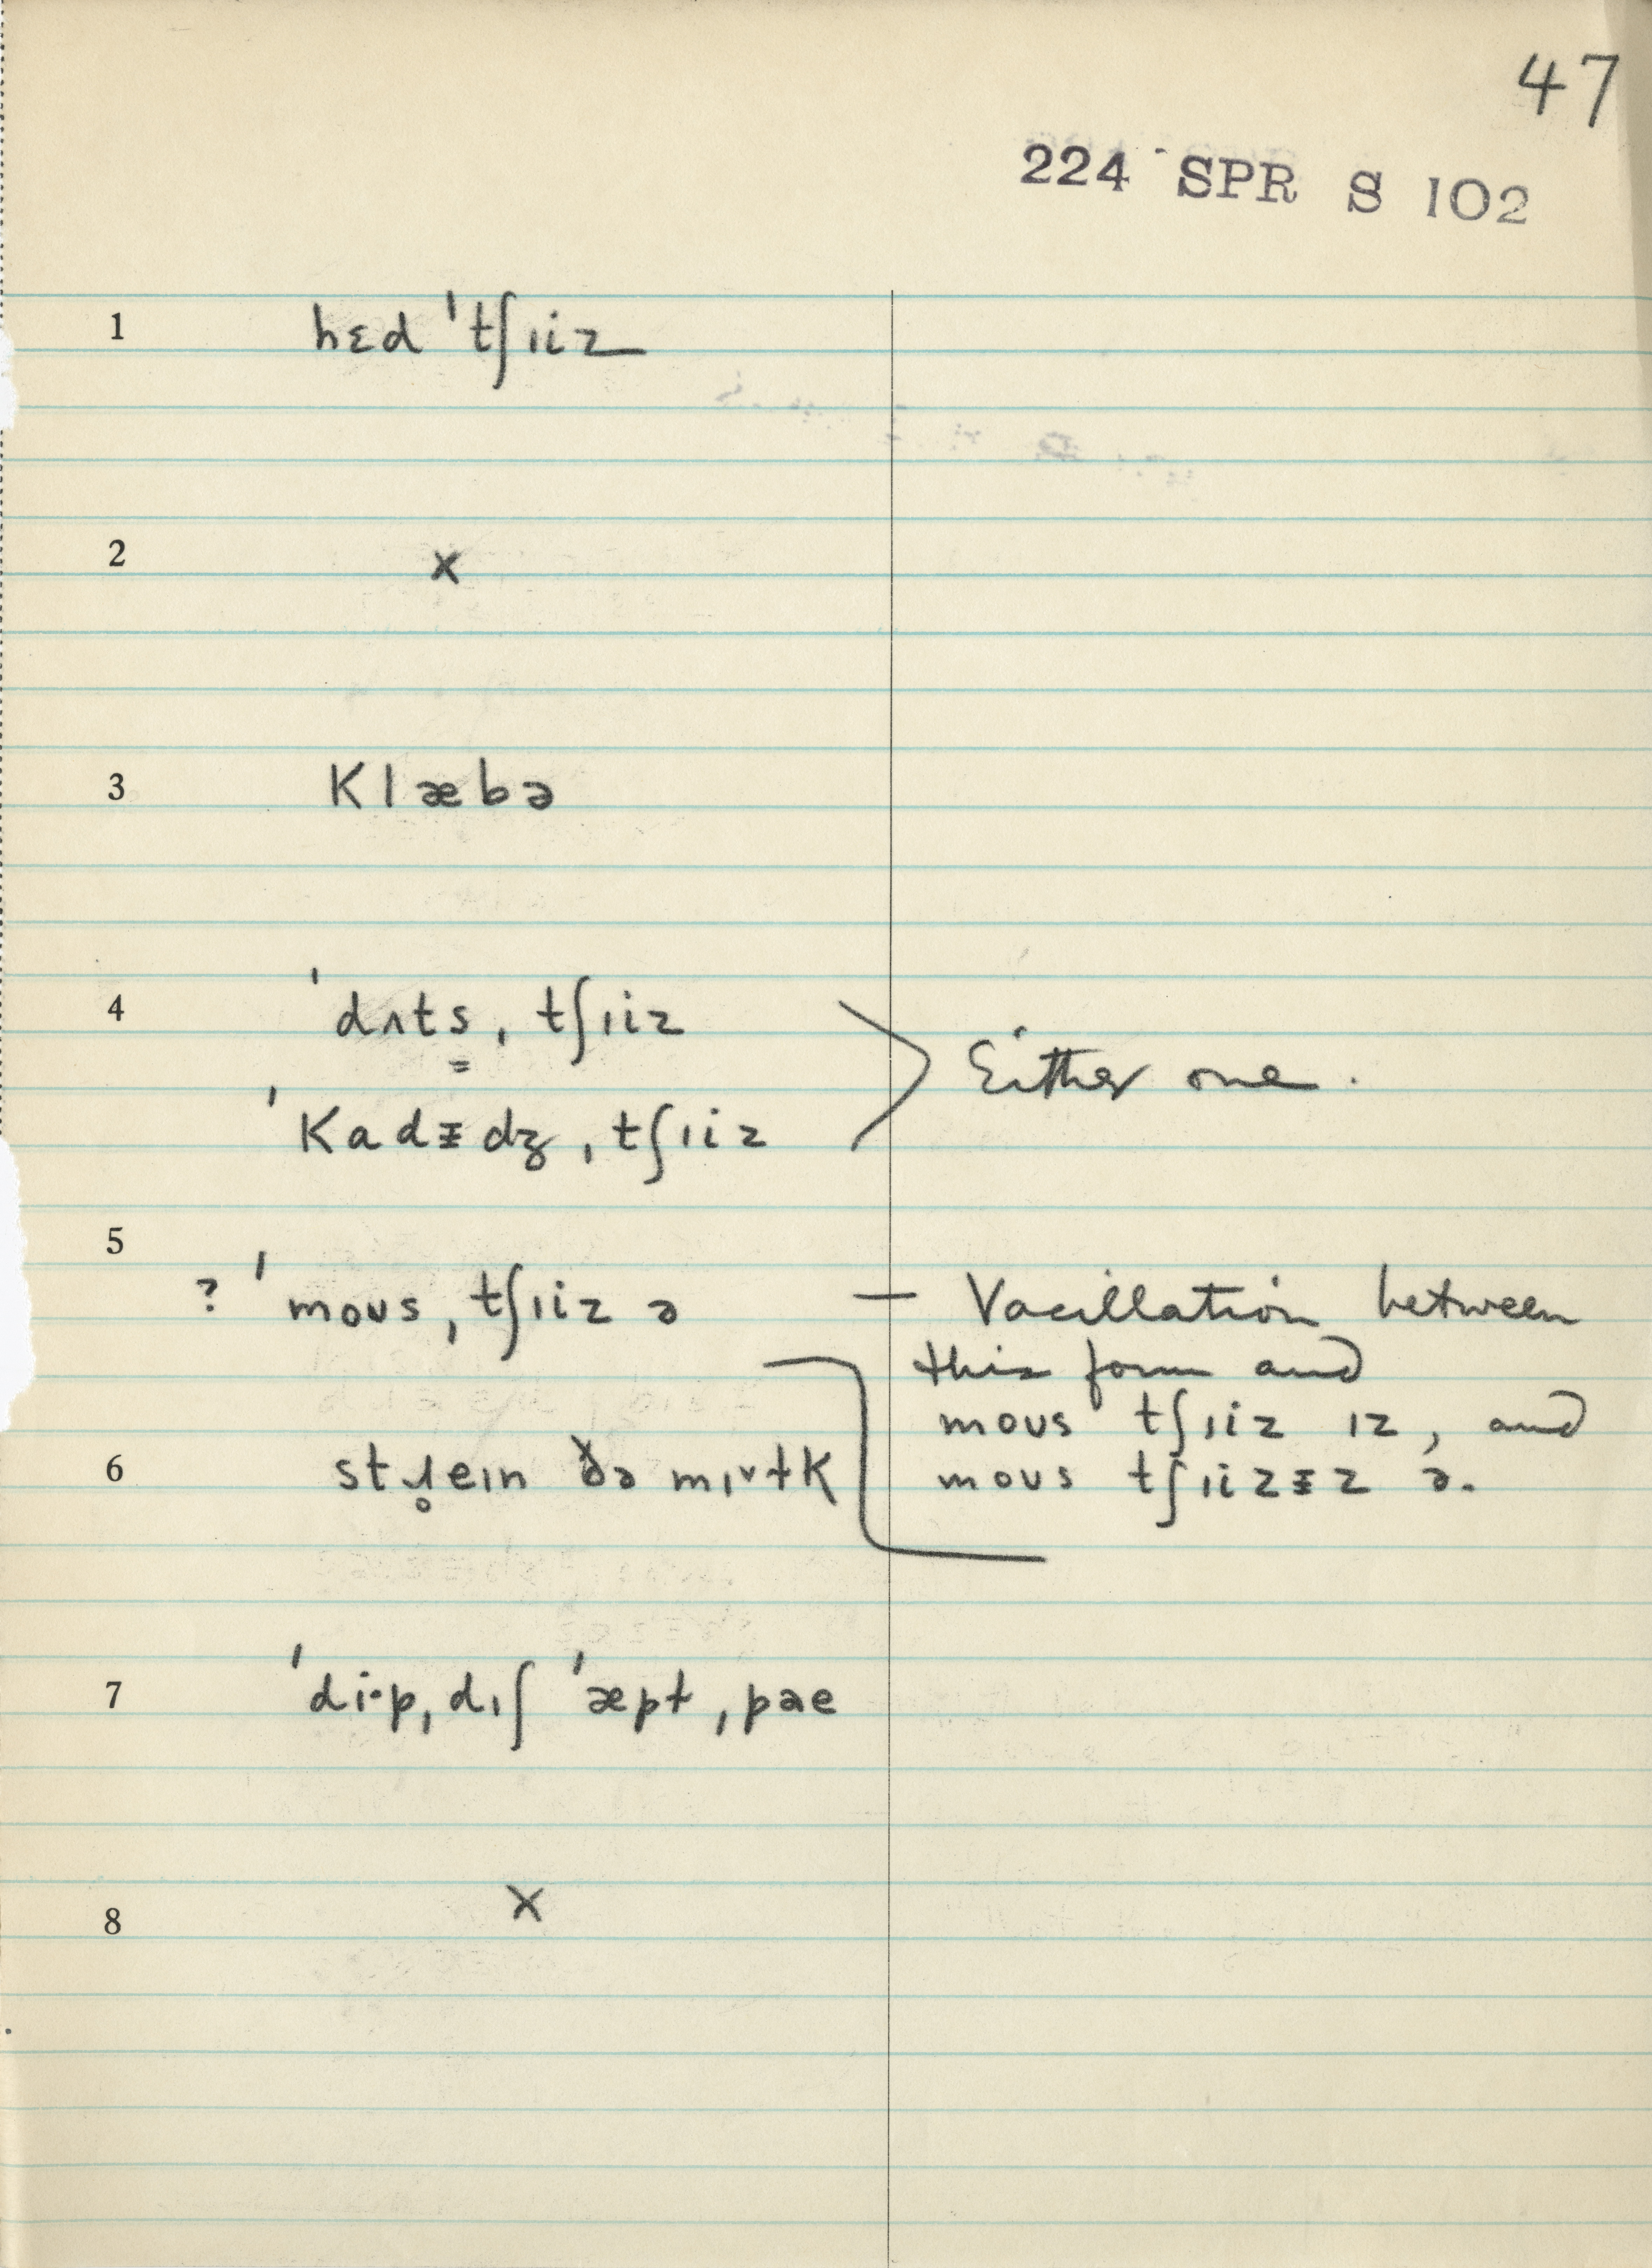 47
224 SPR S 102
1 hɛd ˈtʃɪiz
2 x
3 Klæbə
4 ˈdʌts̳ ˌtʃɪiz
ˈKadᵻdʒ ˌtʃɪiz
Either one.
5
? ˈmoʊs ˌtʃɪiz ə — Vacillation between
this form and
moʊs tʃɪiz ɪz, and
moʊs tʃɪizᵻz ə.
6 stɹ̥eɪn ðə mɪ˅ɫK
7 ˈdi·p ˌdɪʃ ˈæpɫ ˌpae
8 x